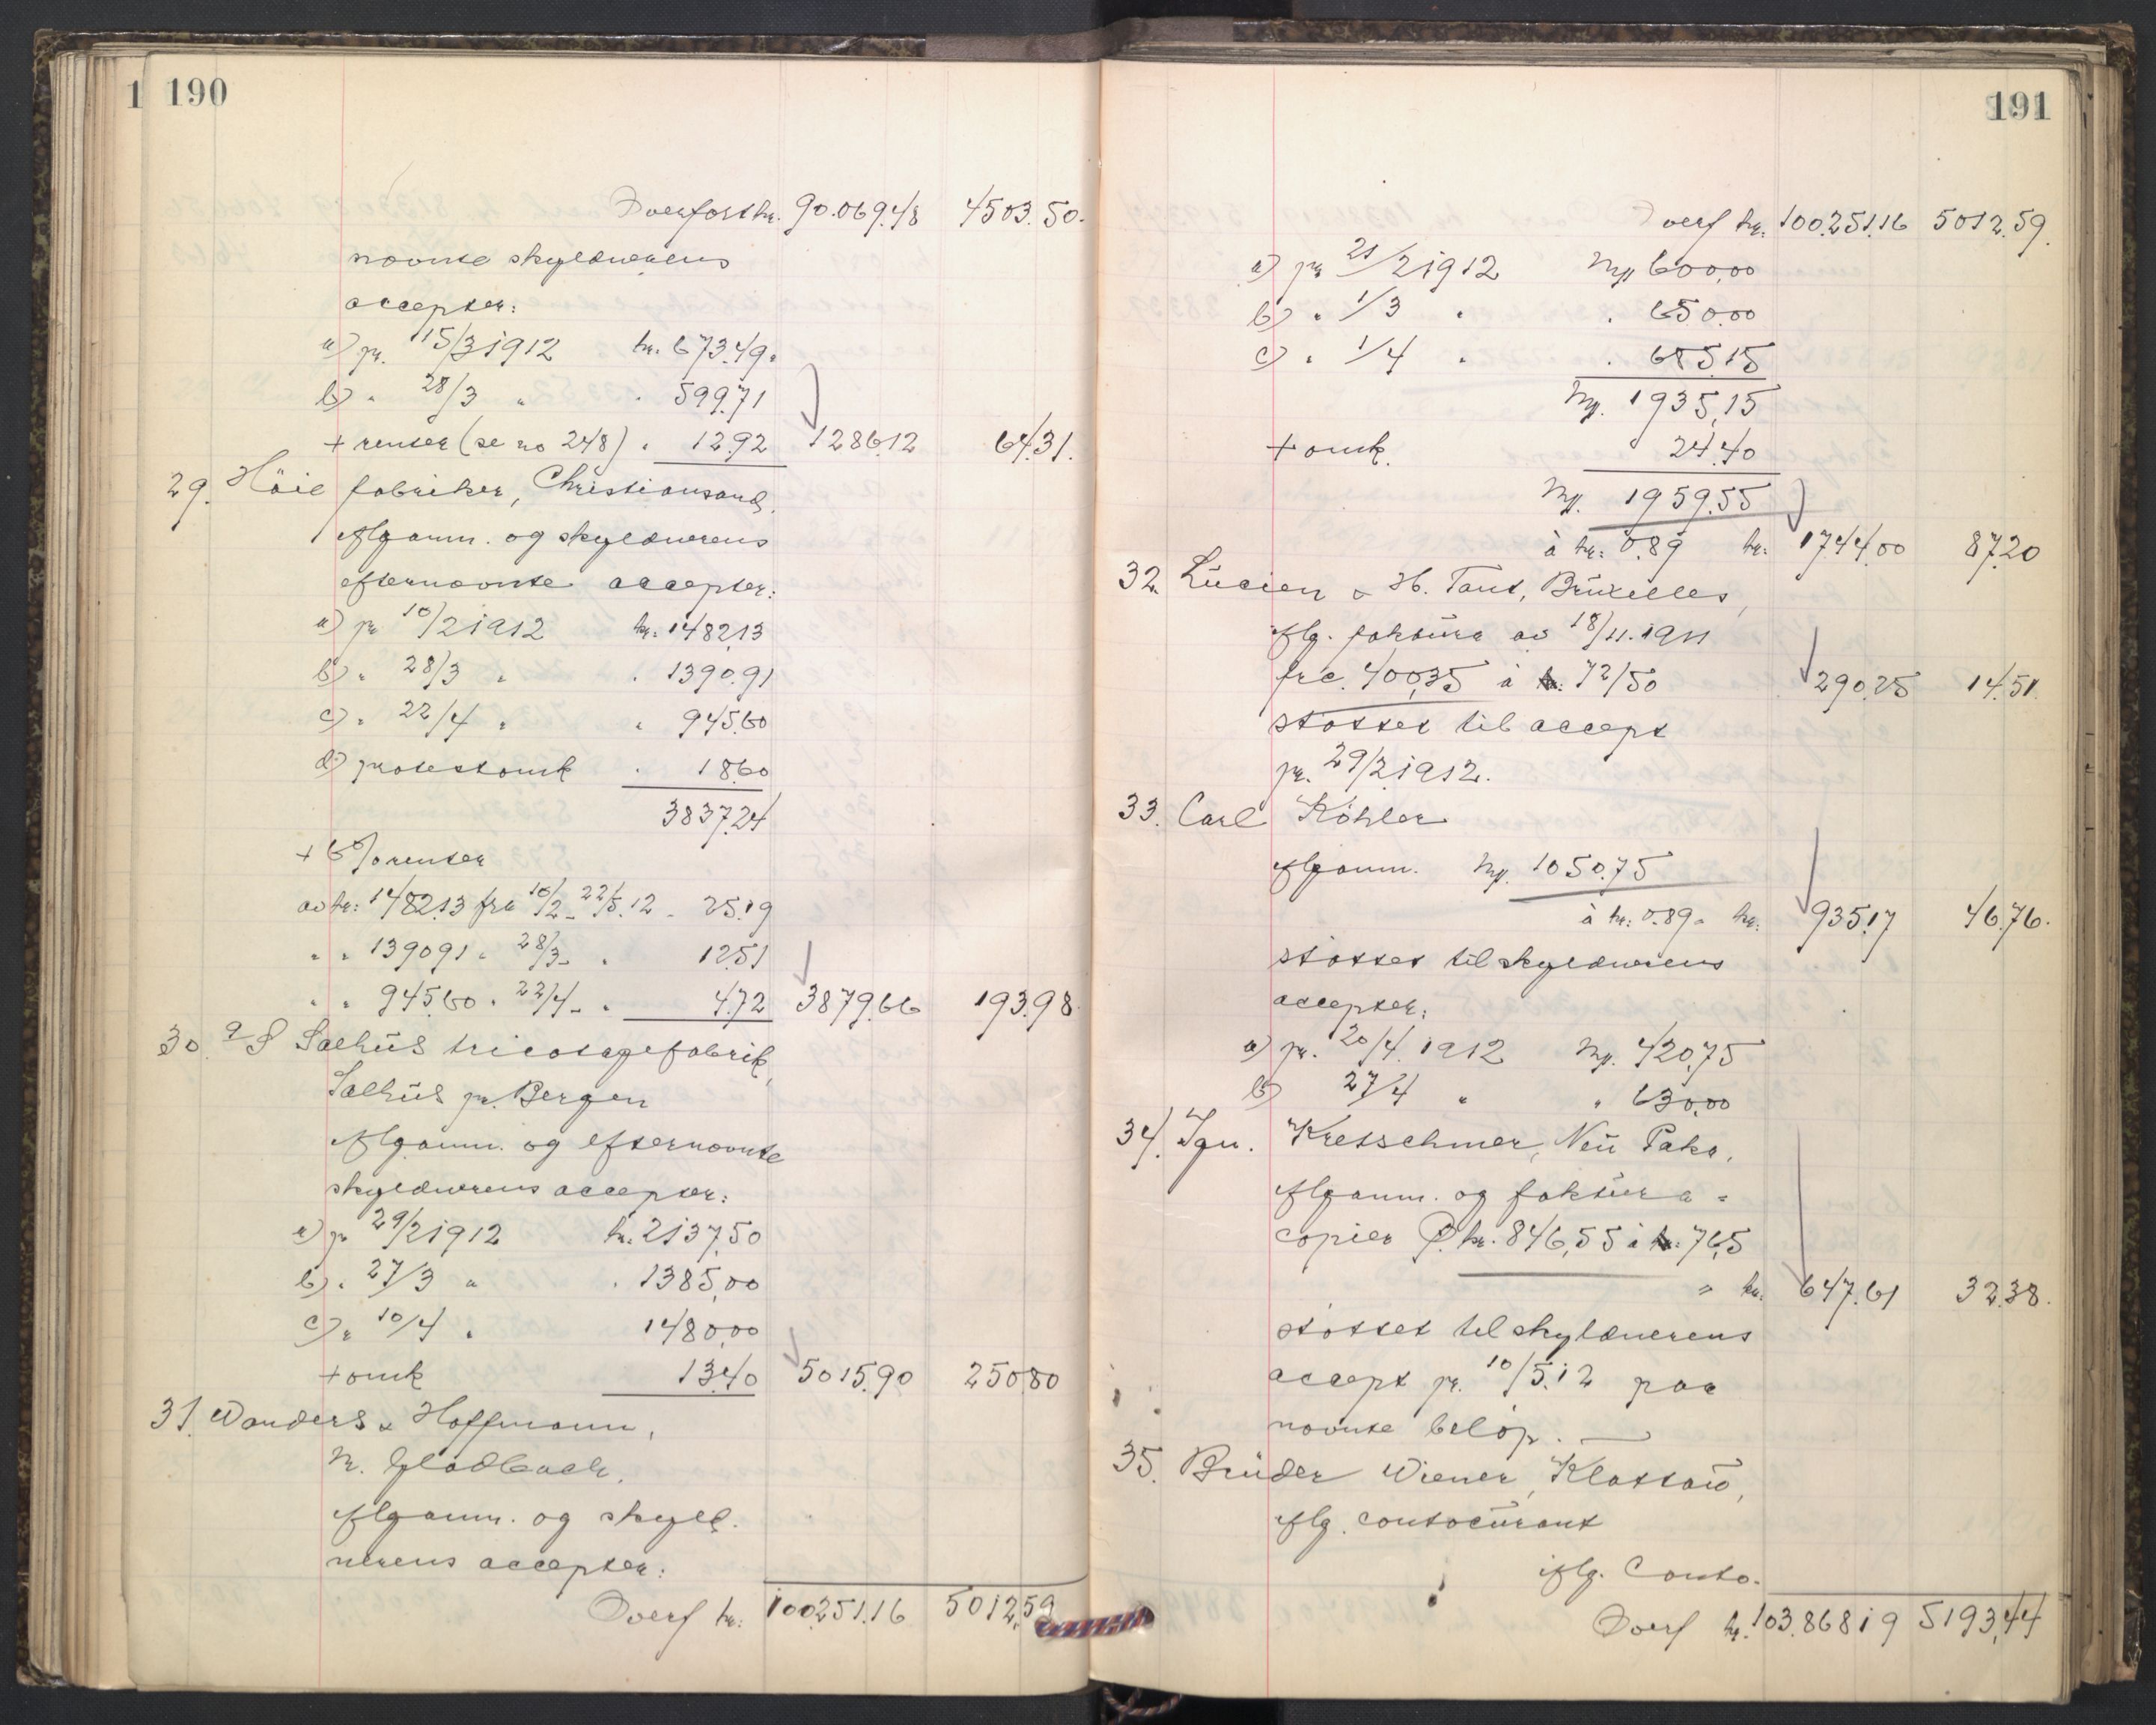 1 190
Overført kr. 90.069.48 4503.50.
nævnte skyldnerens
accepter:
a) pr. 15/3 1912 kr. 673.49.
b) " 28/3 " " 599.71
+ renter (se no 248) " 12.92 1286.12 64.31.
29. Höie fabriker, Christiansand.
Iflg anm. og skyldnerens
efternævnte accepter:
a) pr 10/2 1912 kr. 1482.13
b) " 28/3 " " 1390.91
c) " 22/4 " " 945.60
d) protestomk " 18.60
3837.24
+ 6 % renter
av kr: 1482.13 fra 10/2 - 22/5.12 - 25.19
" " 1390.91 " 28/3 - " 12.51
" " 945.60 " 22/4 - " 4.72 3879.66 193.98
30. a/S Salhüs tricotagefabrik,
Salhüs pr. Bergen
Iflg anm. og efternævnte
skyldnerens accepter:
a) pr 29/2 1912 kr. 2137,50
b) " 27/3 " " 1385,00
c) " 10/4 " 1480,00
+ omk 13.40 5015.90 250.80
31. Wanders & Hoffmann,
M. Gladbach.
Iflg anm. og skyld-
nerens accepter:
Overf kr: 100.251.16 5012,59
191
Overf kr. 100.251.16 5012.59.
a) pr 21/2 1912 Mk 600,00
b) " 1/3 " " 650.00
c) " 1/4 " " 685.15
Mk. 1935,15
+ omk. 24.40
Mk. 1959.55
à kr: 0.89 kr: 1744.00 87.20
32. Lücien & H. Tant, Brüxelles,
Iflg. faktüra av 18/11.1911
frc. 400,35 à 72/50 290.25 14.51
støttet til accept
pr. 29/2 1912.
33. Carl Köhler
Iflg anm. Mk. 1050.75
à kr: 0.89 - kr. 935.17 46.76.
støttet til skyldnerens
accepter:
a) pr. 20/4. 1912 Mk. 420,75
b) 27/4 " " 630,00
34. Ign. Kretschmer, Neü Paka,
Iflg anm. og faktüra-
copier Ø. kr. 846,55 à 76,5
= kr. 647.61 32.38.
støttet til skyldnerens
accept pr. 10/5.12 paa
nævnte beløp.
35. Brüder Wiener, Klattau,
Iflg. contocürant
iflg. Conto.
Overf kr. 103.868 19 5193,44